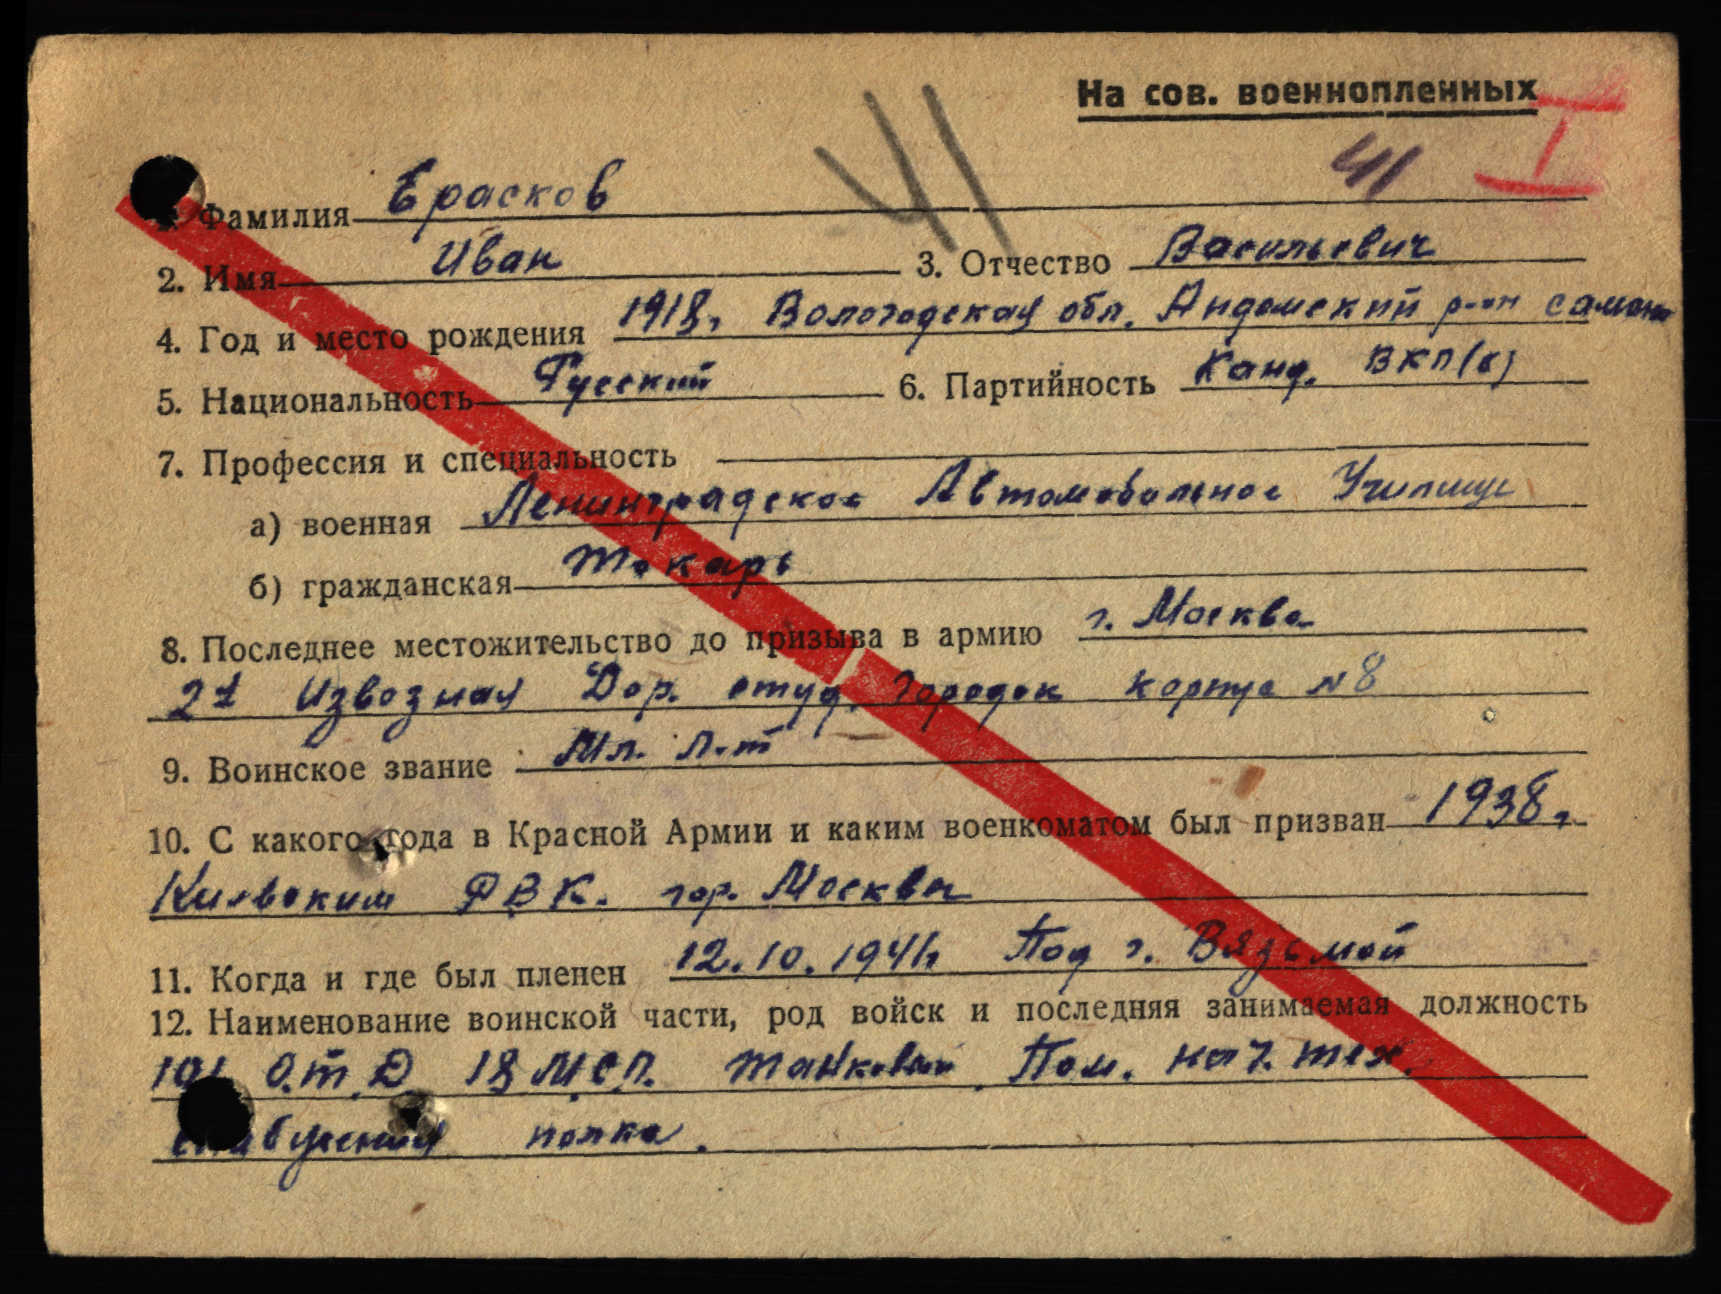 На сов. военнопленных
41 41 I
Фамилия Ерасков
2. Имя Иван 3. Отчество Васильевич
4. Год и место рождения 1918г. Вологодская обл. Андомский р-он
5. Национальность Русский 6. Партийность Канд. ВКП(б)
7. Профессия и специальность
а) военная Ленинградское Автомобильное Училище
б) гражданская Токарь
8. Последнее местожительство до призыва в армию г. Москва
21 Извозная Дор. студ. Городок корпус №8
9. Воинское звание Мл. Л-т
10. С какого года в Красной Армии и каким военкоматом был призван 1938г.
Киевским РВК. гор. Москвы
11. Когда и где был пленен 12.10.1941г Под г. Вязьмой
12. Наименование воинской части, род войск и последняя занимаемая должность
101 О.т.Д. 18 М.С.П. Танковый. Пом. нач. тех.
снабжения полка.